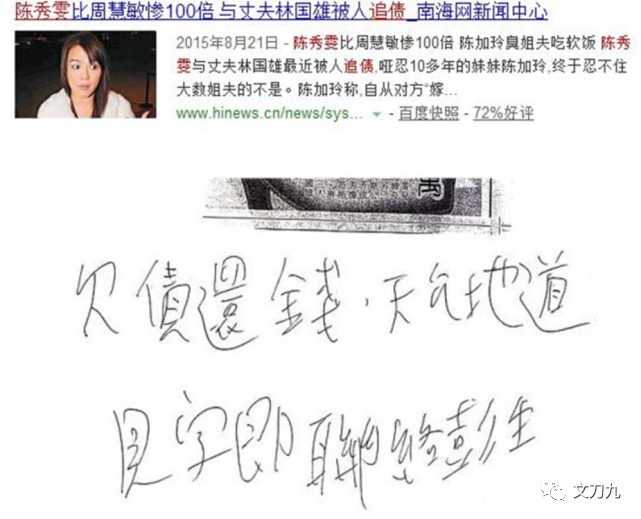 陈秀雯比周慧敏惨100倍 与丈夫林国雄被人追债_南海网新闻中心
2015年8月21日 - 陈秀雯比周慧敏惨100倍 陈加玲臭姐夫吃软饭 陈秀
雯与丈夫林国雄最近被人追债,哑忍10多年的妹妹陈加玲,终于忍不住
大数姐夫的不是。陈加玲称,自从对方“嫁...
www.hinews.cn/news/sys... - 百度快照 - 72%好评
萬
欠債還錢，天公地道
見字即聯絡彭生
文刀九